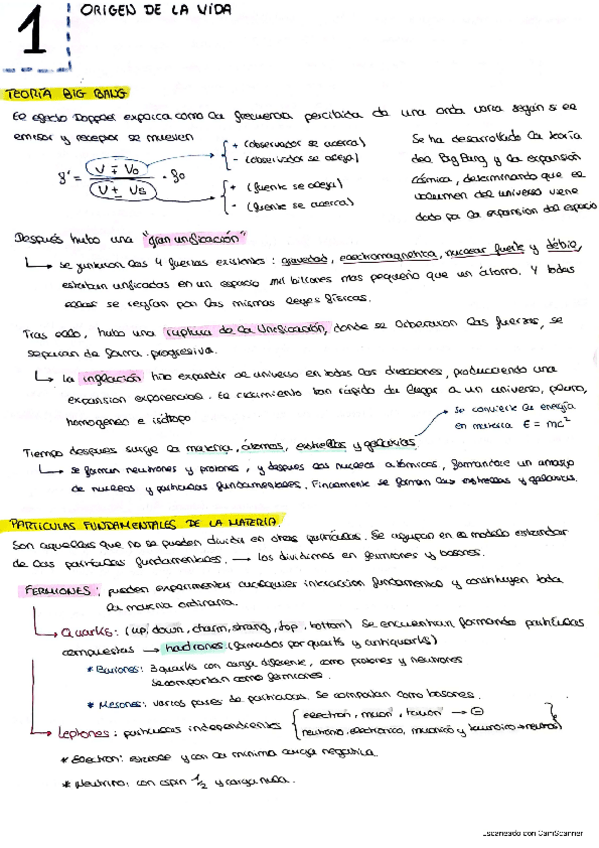 1 ORIGEN DE LA VIDA
TEORÍA BIG BANG
El efecto Doppler explica como la frecuencia percibida de una onda varía según si el
emisor y receptor se mueven
f' = V ∓ Vo / V ± Vs · fo
+ (observador se acerca)
- (observador se aleja)
+ (fuente se aleja)
- (fuente se acerca)
Se ha desarrollado la teoría
del Big Bang y la expansión
cósmica, determinando que el
volumen del universo viene
dado por la expansion del espacio
Después hubo una "gran unificación"
↳ se juntaron las 4 fuerzas existentes: gravedad, electromagnética, nuclear fuerte y débil,
estaban unificadas en un espacio mil billones mas pequeño que un átomo. Y todas
ellas se regían por las mismas leyes físicas.
Tras ello, hubo una ruptura de la Unificación, donde se liberaron las fuerzas, se
separan de forma progresiva.
↳ la inflación hizo expandir el universo en todas las direcciones, produciendo una
expansion exponencial. El crecimiento tan rápido da lugar a un universo, plano,
homogeneo e isótopo
→ se convierte la energía
en materia E = mc²
Tiempo despues surge la materia, átomos, estrellas y galaxias
↳ se forman neutrones y protones, y despues los nucleos atómicos, formandose un amasijo
de nucleos y particulas fundamentales. Finalmente se forman las estrellas y galaxias.
PARTICULAS FUNDAMENTALES DE LA MATERIA.
Son aquellas que no se pueden dividir en otras particulas. Se agrupan en el modelo estandar
de las particulas fundamentales. → los dividimos en fermiones y bosones.
FERMIONES: pueden experimentar cualquier interaccion fundamental y constituyen toda
la materia ordinaria.
↳ Quarks: (up, down, charm, strang, top, bottom) Se encuentran formando particulas
compuestas → hadrones (formados por quarks y antiquarks)
* Bariones: 3 quarks con carga diferente, como protones y neutrones
se comportan como fermiones.
* Mesones: varios pares de particulas. Se comportan como bosones.
↳ Leptones: particulas independientes
electron, muon, tauon → ⊖
neutrino, electronico, muonico y tauonico → neutros
* Electron: estable y con la mínima carga negativa.
* Neutrino: con espin 1/2 y carga nula.
Escaneado con CamScanner